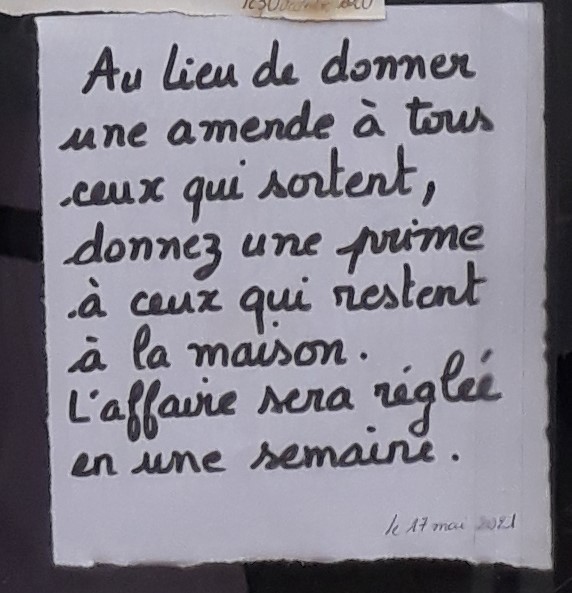 Au lieu de donner
une amende à tous
ceux qui sortent,
donnez une prime
à ceux qui restent
à la maison.
L'affaire sera réglée
en une semaine.
le 17 mai 2021